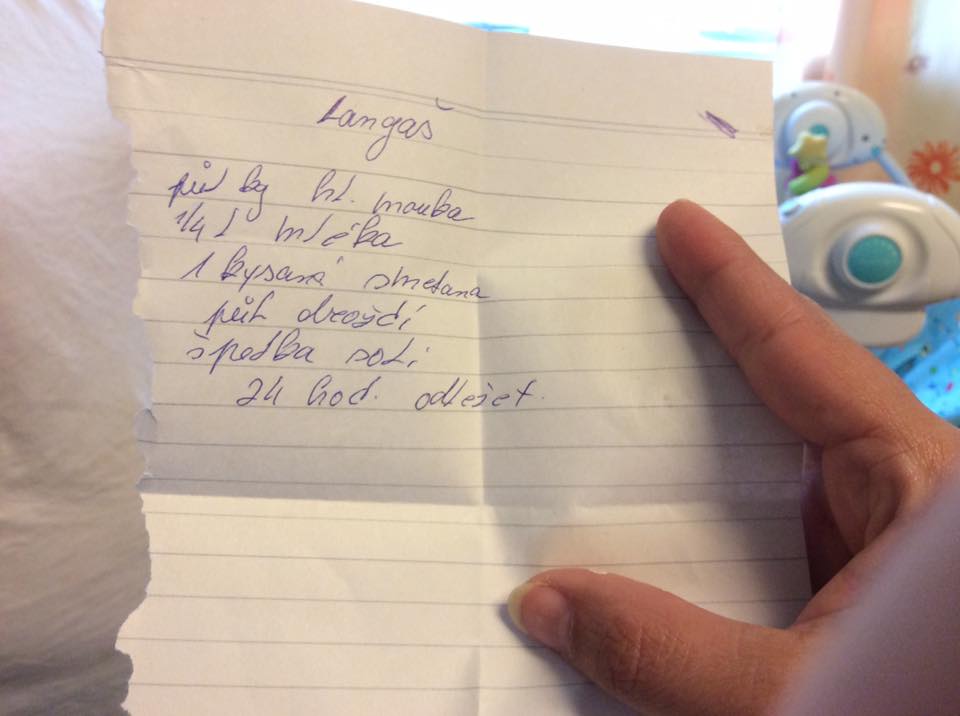 Langaš
půl kg hl. mouka
1/4 l mléka
1 kysaná smetana
půl droždí
špetka soli
24 hod. odležet.